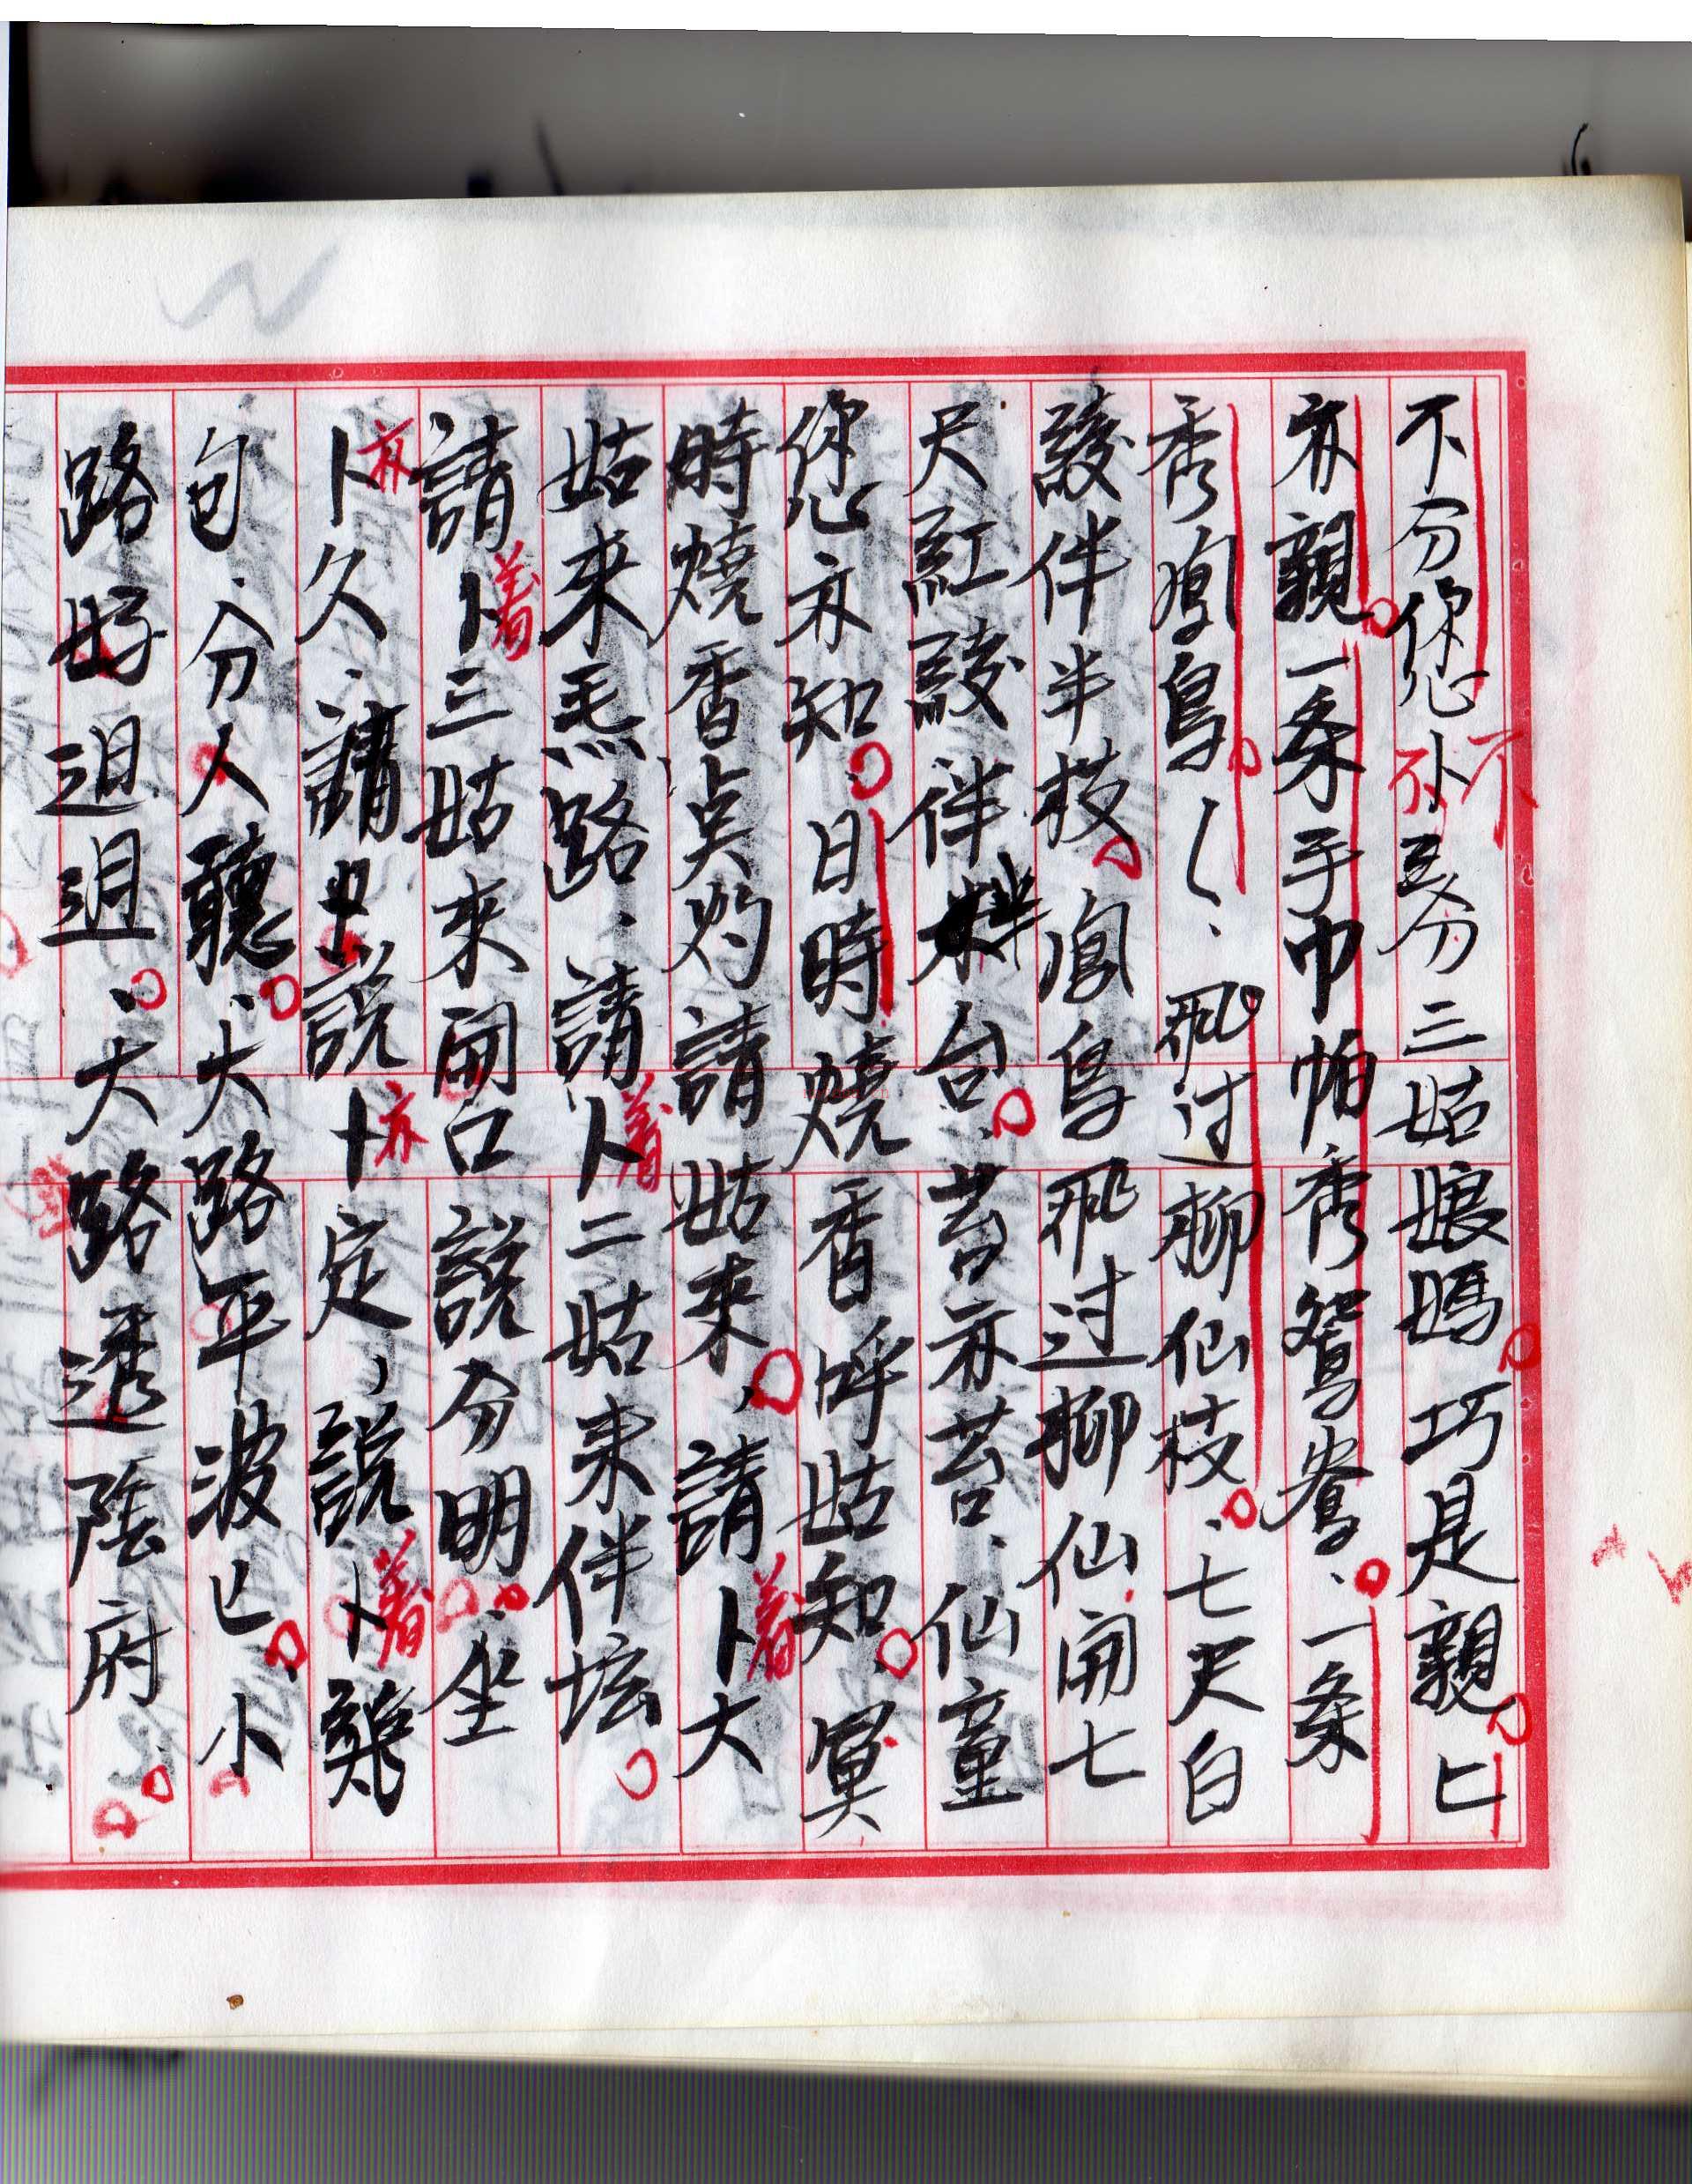 不分您卜吾分三姑娘媽巧是親匕
亦親一条手巾帕秀鴛鴦、一条
秀鳳鳥〱、飛过柳仙枝、七尺白
綾伴半枝鳳鳥飛过柳仙開七
尺紅綾伴台、苔亦苔、仙童
您亦知、日時燒香呼姑知、冥
時燒香点灼請姑來，請卜着大
姑來馬路、請卜着二姑來伴坛
請卜着三姑來開口說分明、坐
卜亦久、請說卜亦定，說卜着難
句、分人聽、大路平波匕、小
路好迌迌、大路透陰府